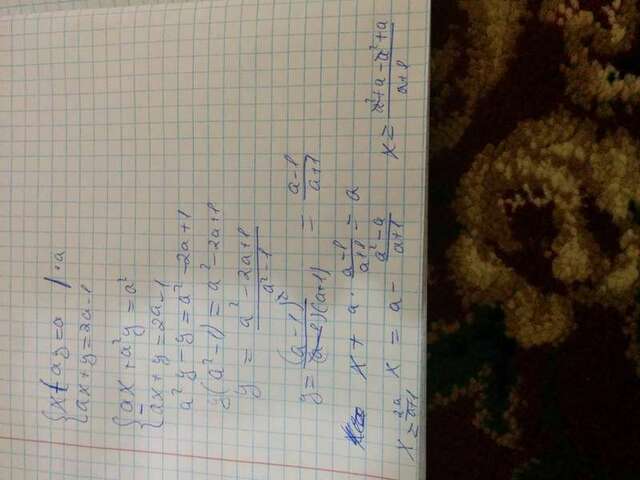 {x+ay=a | ·a
{ax+y=2a-1
{ax+a²y=a²
{ax+y=2a-1
a²y-y=a²-2a+1
y(a²-1)=a²-2a+1
y = (a²-2a+1)/(a²-1)
y = (a-1)²/((a-1)(a+1)) = (a-1)/(a+1)
x + a · (a-1)/(a+1) = a
x = a - (a²-a)/(a+1) x = (a²+a-a²+a)/(a+1)
x = 2a/(a+1)